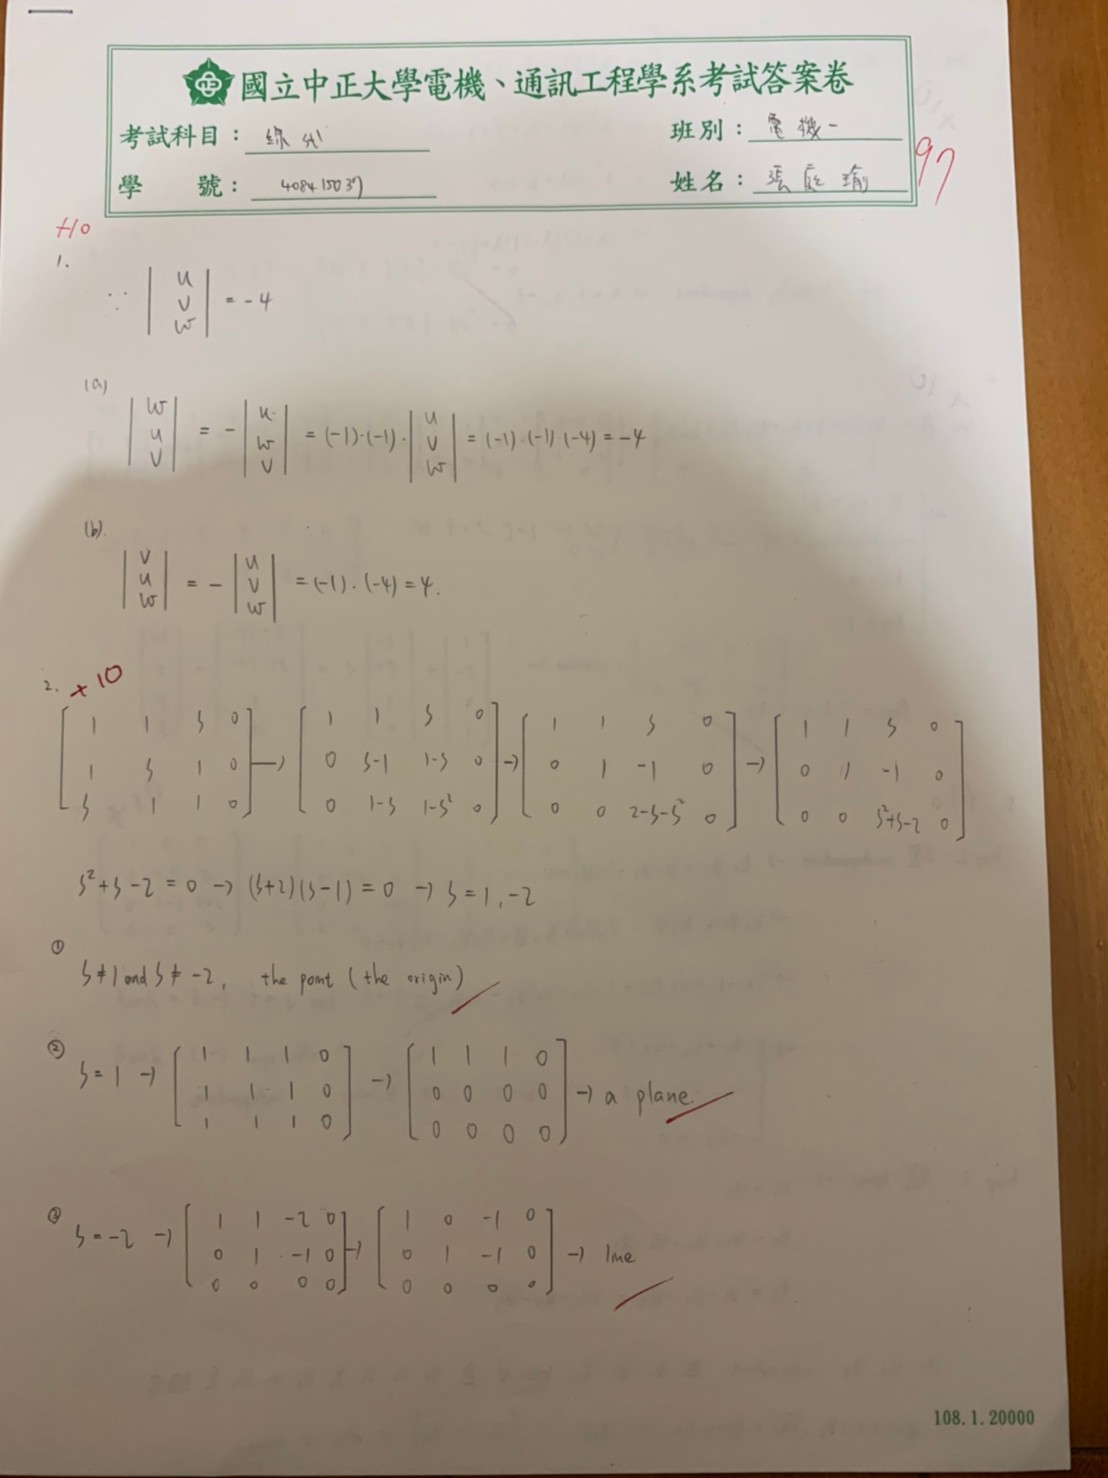 國立中正大學電機、通訊工程學系考試答案卷
考試科目： 線代 班別： 電機一
學 號： 408415037 姓名： 張庭瑜
97
+10
1.
∵ | u v w | = -4
(a)
| w u v | = - | u w v | = (-1)·(-1)· | u v w | = (-1)·(-1)·(-4) = -4
(b).
| v u w | = - | u v w | = (-1)·(-4) = 4.
2. +10
[ 1 1 s 0 ] → [ 1 1 s 0 ] → [ 1 1 s 0 ] → [ 1 1 s 0 ]
[ 1 s 1 0 ] [ 0 s-1 1-s 0 ] [ 0 1 -1 0 ] [ 0 1 -1 0 ]
[ s 1 1 0 ] [ 0 1-s 1-s² 0 ] [ 0 0 2-s-s² 0 ] [ 0 0 s²+s-2 0 ]
s²+s-2 = 0 → (s+2)(s-1) = 0 → s = 1, -2
①
s≠1 and s ≠ -2, the point (the origin)
②
s = 1 → [ 1 1 1 0 ] → [ 1 1 1 0 ] → a plane.
[ 1 1 1 0 ] [ 0 0 0 0 ]
[ 1 1 1 0 ] [ 0 0 0 0 ]
③
s = -2 → [ 1 1 -2 0 ] → [ 1 0 -1 0 ] → line
[ 0 1 -1 0 ] [ 0 1 -1 0 ]
[ 0 0 0 0 ] [ 0 0 0 0 ]
108.1.20000